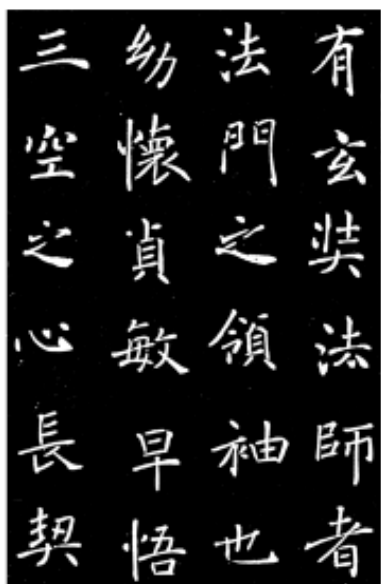 有玄奘法師者
法門之領袖也
幼懷貞敏早悟
三空之心長契